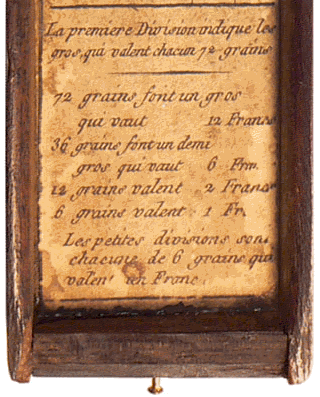 La premiere Division indique les
gros, qui valent chacun 72 grains
72 grains font un gros
qui vaut 12 Francs
36 grains font un demi
gros qui vaut 6 Frn.
12 grains valent 2 Francs
6 grains valent 1 Fr.
Les petites divisions son
chacune de 6 grains qui
valen un Franc.